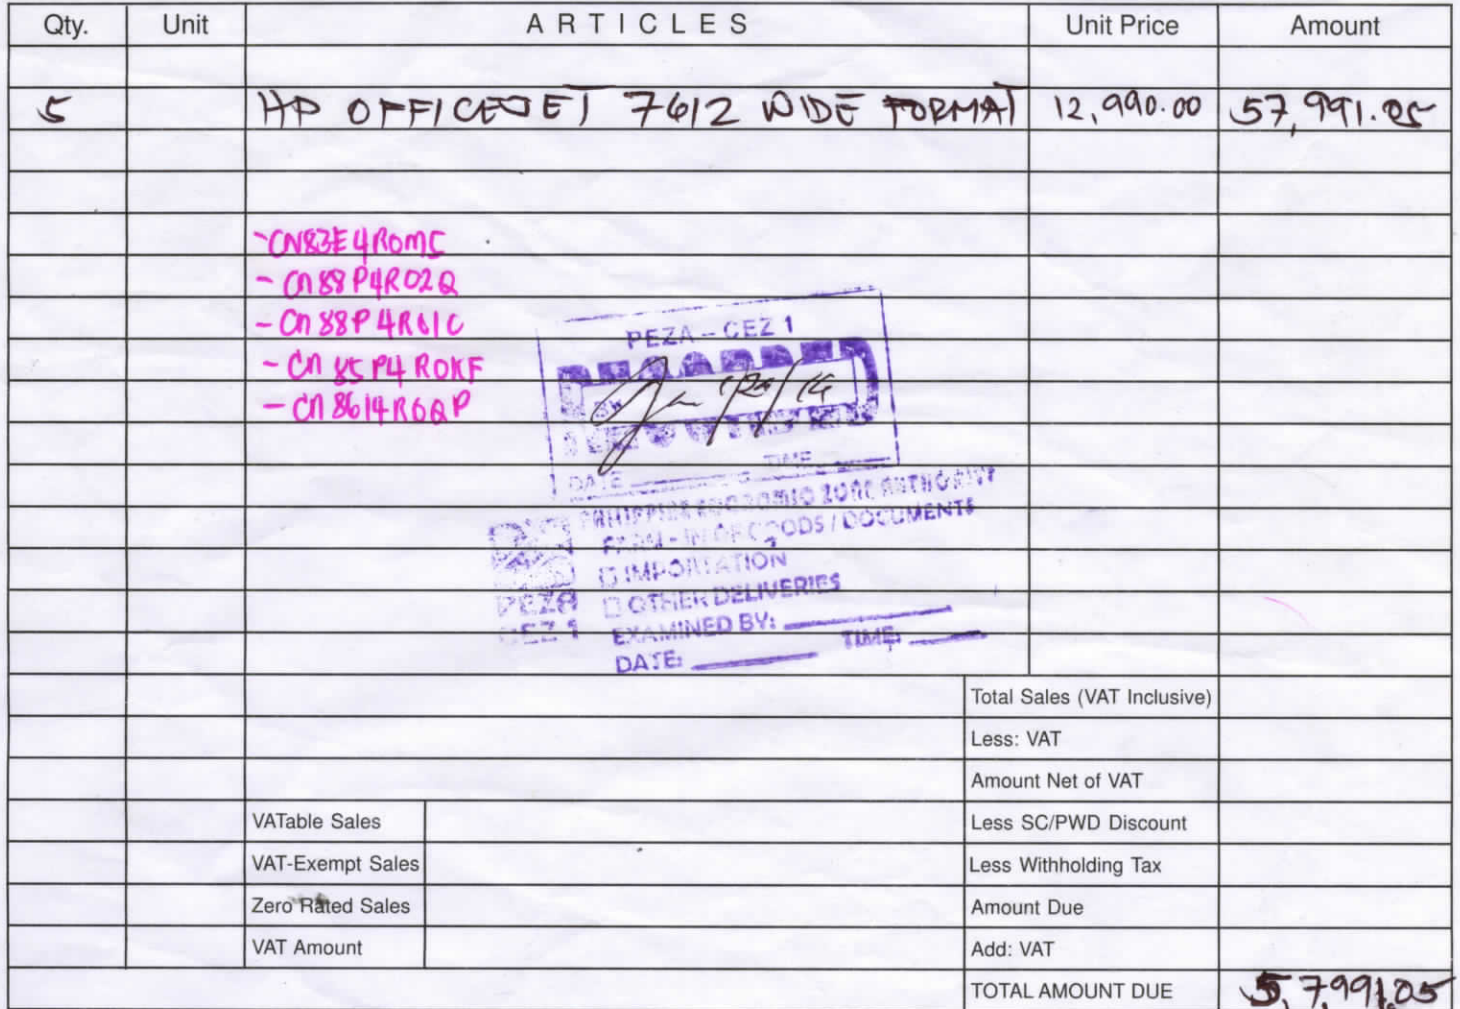 Qty. Unit ARTICLES Unit Price Amount
5 HP OFFICEJET 7612 WIDE FORMAT 12,990.00 57,991.05
-CN83E4R0MC
- Cn88P4R02Q
- Cn88P4R61C
- Cn85P4R0KF
- Cn8614R0QP
PEZA -- CEZ 1
DATE TIME
PHILIPPINE ECONOMIC ZONE AUTHORITY
GOODS / DOCUMENTS
IMPORTATION
PEZA OTHER DELIVERIES
CEZ 1 EXAMINED BY:
DATE: TIME:
Total Sales (VAT Inclusive)
Less: VAT
Amount Net of VAT
VATable Sales Less SC/PWD Discount
VAT-Exempt Sales Less Withholding Tax
Zero Rated Sales Amount Due
VAT Amount Add: VAT
TOTAL AMOUNT DUE 5,7,991.05